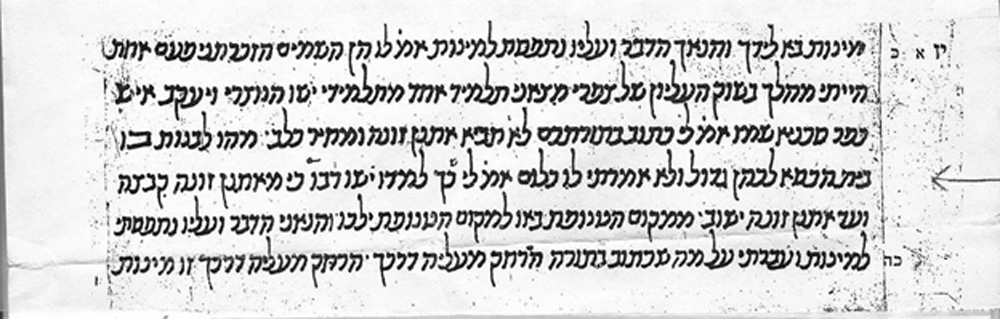 מינות בא לידך והנאך הדבר ועליו נתפסת למינות אמ' לו הין השמים הזכרתני פעם אחת
הייתי מהלך בשוק העליון של צפרי מצאני תלמיד אחד מתלמידי ישו הנוצרי ויעקב איש
כפר סכניא שמו אמ' לי כתוב בתורתכם לא תביא אתנן זונה ומחיר כלב מהו לבנות בו
בית הכסא לכהן גדול ולא אמרתי לו כלום אמ' לי כך למדו ישו רבו כי מאתנן זונה קבצה
ועד אתנן זונה ישובו ממקום הטנופת באו למקום הטנופת ילכו והנאני הדבר ועליו נתפסתי
למינות ועברתי על מה שכתוב בתורה הרחק מעליה דרכך הרחק מעליה דרכך זו מינות
יז א כ
כה